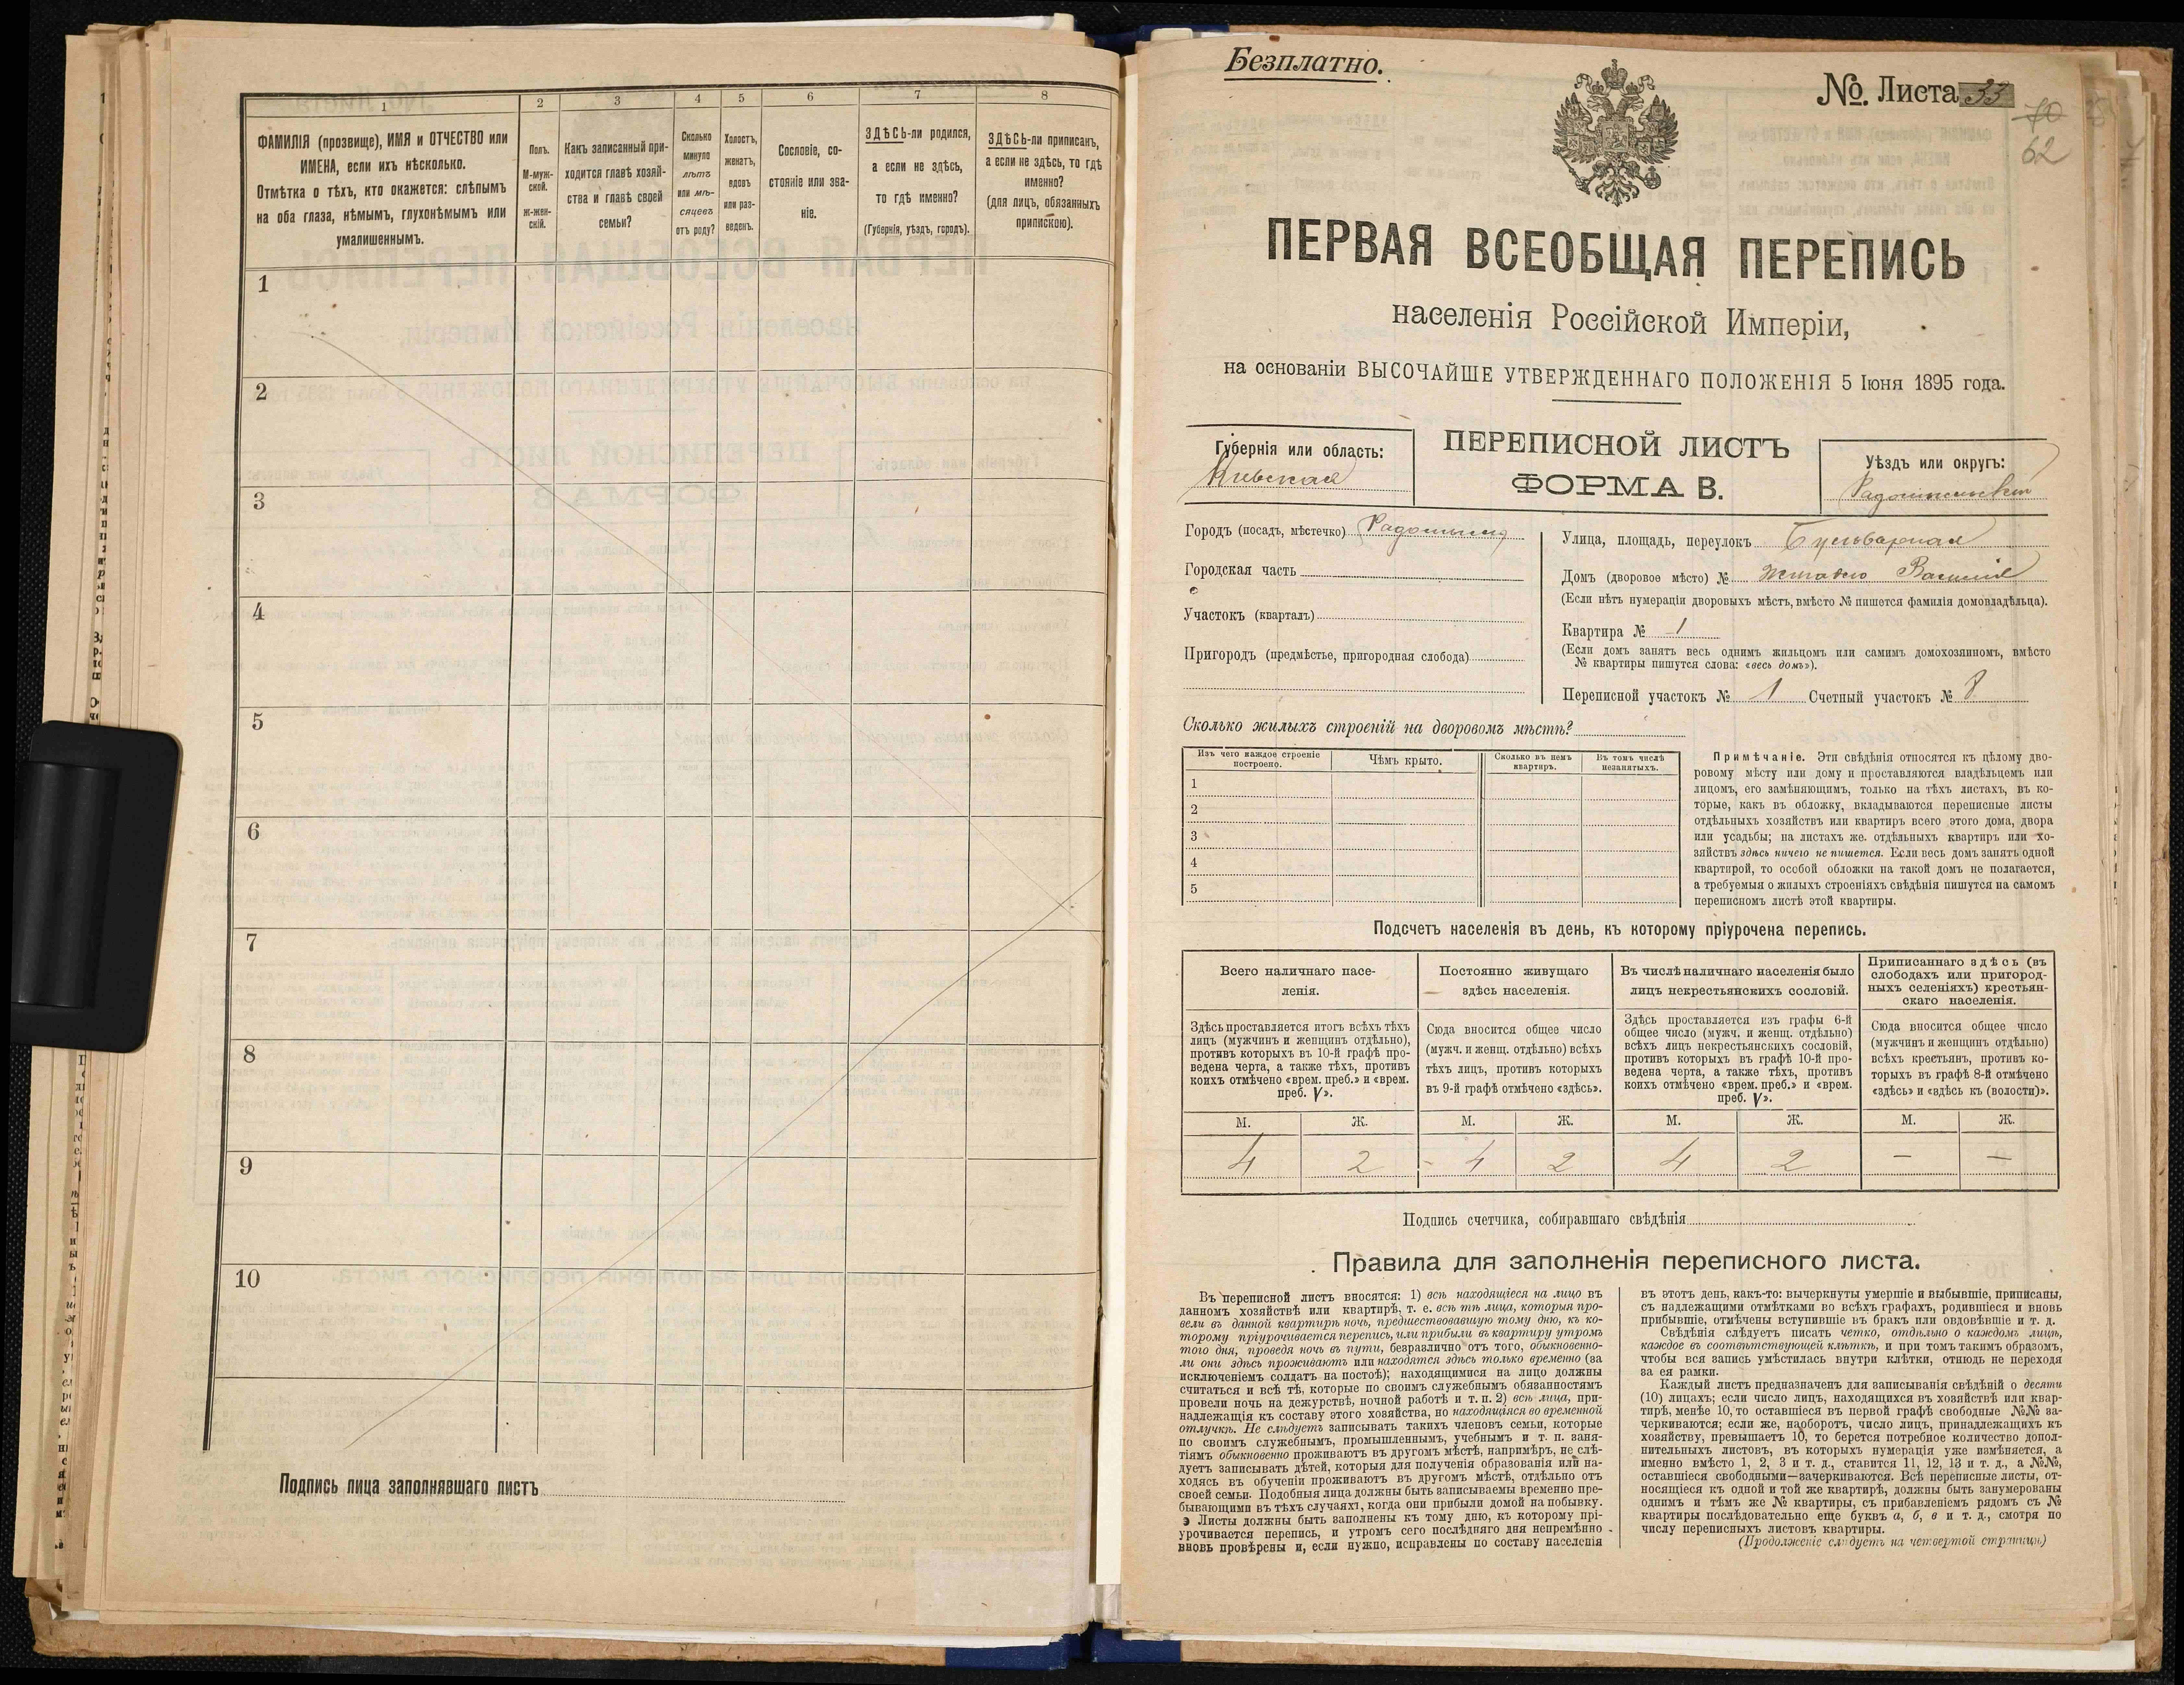 1
2
3
4
5
6
7
8
ФАМИЛІЯ (прозвище), ИМЯ и ОТЧЕСТВО или
ИМЕНА, если ихъ нѣсколько.
Отмѣтка о тѣхъ, кто окажется: слѣпымъ
на оба глаза, нѣмымъ, глухонѣмымъ или
умалишеннымъ.
Полъ.
М-муж-
ской.
ж-жен-
скій.
Какъ записанный при-
ходится главѣ хозяй-
ства и главѣ своей
семьи?
Сколько
минуло
лѣтъ
или мѣ-
сяцевъ
отъ роду?
Холостъ,
женатъ,
вдовъ
или раз-
веденъ.
Сословіе, со-
стояніе или зва-
ніе.
ЗДѢСЬ-ли родился,
а если не здѣсь,
то гдѣ именно?
(Губернія, уѣздъ, городъ).
ЗДѢСЬ-ли приписанъ,
а если не здѣсь, то гдѣ
именно?
(для лицъ, обязанныхъ
припискою).
1
2
3
4
5
6
7
8
9
10
Подпись лица заполнявшаго листъ
Безплатно.
№ Листа 33
70
62
ПЕРВАЯ ВСЕОБЩАЯ ПЕРЕПИСЬ
населенія Россійской Имперіи,
на основаніи ВЫСОЧАЙШЕ УТВЕРЖДЕННАГО ПОЛОЖЕНІЯ 5 Іюня 1895 года.
Губернія или область:
Кіевская
ПЕРЕПИСНОЙ ЛИСТЪ
ФОРМА В.
Уѣздъ или округъ:
Радомысльскій
Городъ (посадъ, мѣстечко) Радомысль
Городская часть
Участокъ (кварталъ)
Пригородъ (предмѣстье, пригородная слобода)
Улица, площадь, переулокъ Бульварная
Домъ (дворовое мѣсто) № Василія
(Если нѣтъ нумераціи дворовыхъ мѣстъ, вмѣсто № пишется фамилія домовладѣльца).
Квартира № 1
(Если домъ занятъ весь однимъ жильцомъ или самимъ домохозяиномъ, вмѣсто
№ квартиры пишутся слова: «весь домъ»).
Переписной участокъ № 1 Счетный участокъ № 8
Сколько жилыхъ строеній на дворовомъ мѣстѣ?
Изъ чего каждое строеніе
построено.
Чѣмъ крыто.
Сколько въ немъ
квартиръ.
Въ томъ числѣ
незанятыхъ.
1
2
3
4
5
Примѣчаніе. Эти свѣдѣнія относятся къ цѣлому дво-
ровому мѣсту или дому и проставляются владѣльцемъ или
лицомъ, его замѣняющимъ, только на тѣхъ листахъ, въ ко-
торые, какъ въ обложку, вкладываются переписные листы
отдѣльныхъ хозяйствъ или квартиръ всего этого дома, двора
или усадьбы; на листахъ же. отдѣльныхъ квартиръ или хо-
зяйствъ здѣсь ничего не пишется. Если весь домъ занятъ одной
квартирой, то особой обложки на такой домъ не полагается,
а требуемыя о жилыхъ строеніяхъ свѣдѣнія пишутся на самомъ
переписномъ листѣ этой квартиры.
Подсчетъ населенія въ день, къ которому пріурочена перепись.
Всего наличнаго насе-
ленія.
Постоянно живущаго
здѣсь населенія.
Въ числѣ наличнаго населенія было
лицъ некрестьянскихъ сословій.
Приписаннаго здѣсь (въ
слободахъ или пригород-
ныхъ селеніяхъ) крестьян-
скаго населенія.
Здѣсь проставляется итогъ всѣхъ тѣхъ
лицъ (мужчинъ и женщинъ отдѣльно),
противъ которыхъ въ 10-й графѣ про-
ведена черта, а также тѣхъ, противъ
коихъ отмѣчено «врем. преб.» и «врем.
преб. V».
Сюда вносится общее число
(мужч. и женщ. отдѣльно) всѣхъ
тѣхъ лицъ, противъ которыхъ
въ 9-й графѣ отмѣчено «здѣсь».
Здѣсь проставляется изъ графы 6-й
общее число (мужч. и женщ. отдѣльно)
всѣхъ лицъ некрестьянскихъ сословій,
противъ которыхъ въ графѣ 10-й про-
ведена черта, а также тѣхъ, противъ
коихъ отмѣчено «врем. преб.» и «врем.
преб. V».
Сюда вносится общее число
(мужчинъ и женщинъ отдѣльно)
всѣхъ крестьянъ, противъ ко-
торыхъ въ графѣ 8-й отмѣчено
«здѣсь» и «здѣсь къ (волости)».
М. Ж. М. Ж. М. Ж. М. Ж.
4 2 4 2 4 2 — —
Подпись счетчика, собиравшаго свѣдѣнія
Правила для заполненія переписного листа.
Въ переписной листъ вносятся: 1) всѣ находящіеся на лицо въ
данномъ хозяйствѣ или квартирѣ, т. е. всѣ тѣ лица, которыя про-
вели въ данной квартирѣ ночь, предшествовавшую тому дню, къ ко-
торому пріурочивается перепись, или прибыли въ квартиру утромъ
того дня, проведя ночь въ пути, безразлично отъ того, обыкновенно-
ли они здѣсь проживаютъ или находятся здѣсь только временно (за
исключеніемъ солдатъ на постоѣ); находящимися на лицо должны
считаться и всѣ тѣ, которые по своимъ служебнымъ обязанностямъ
провели ночь на дежурствѣ, ночной работѣ и т. п. 2) всѣ лица, при-
надлежащія къ составу этого хозяйства, но находящіяся во временной
отлучкѣ. Не слѣдуетъ записывать такихъ членовъ семьи, которые
по своимъ служебнымъ, промышленнымъ, учебнымъ и т. п. заня-
тіямъ обыкновенно проживаютъ въ другомъ мѣстѣ, напримѣръ, не слѣ-
дуетъ записывать дѣтей, которыя для полученія образованія или на-
ходясь въ обученіи проживаютъ въ другомъ мѣстѣ, отдѣльно отъ
своей семьи. Подобныя лица должны быть записываемы временно пре-
бывающими въ тѣхъ случаяхъ, когда они прибыли домой на побывку.
Листы должны быть заполнены къ тому дню, къ которому прі-
урочивается перепись, и утромъ сего послѣдняго дня непремѣнно
вновь провѣрены и, если нужно, исправлены по составу населенія
въ этотъ день, какъ-то: вычеркнуты умершіе и выбывшіе, приписаны,
съ надлежащими отмѣтками во всѣхъ графахъ, родившіеся и вновь
прибывшіе, отмѣчены вступившіе въ бракъ или овдовѣвшіе и т. д.
Свѣдѣнія слѣдуетъ писать четко, отдѣльно о каждомъ лицѣ,
каждое въ соотвѣтствующей клѣткѣ, и при томъ такимъ образомъ,
чтобы вся запись умѣстилась внутри клѣтки, отнюдь не переходя
за ея рамки.
Каждый листъ предназначенъ для записыванія свѣдѣній о десяти
(10) лицахъ; если число лицъ, находящихся въ хозяйствѣ или квар-
тирѣ, менѣе 10, то оставшіеся въ первой графѣ свободные №№ за-
черкиваются; если же, наоборотъ, число лицъ, принадлежащихъ къ
хозяйству, превышаетъ 10, то берется потребное количество допол-
нительныхъ листовъ, въ которыхъ нумерація уже измѣняется, а
именно вмѣсто 1, 2, 3 и т. д., ставится 11, 12, 13 и т. д., а №№,
оставшіеся свободными—зачеркиваются. Всѣ переписные листы, от-
носящіеся къ одной и той же квартирѣ, должны быть занумерованы
однимъ и тѣмъ же № квартиры, съ прибавленіемъ рядомъ съ №
квартиры послѣдовательно еще буквъ а, б, в и т. д., смотря по
числу переписныхъ листовъ квартиры.
(Продолженіе слѣдуетъ на четвертой страницѣ)